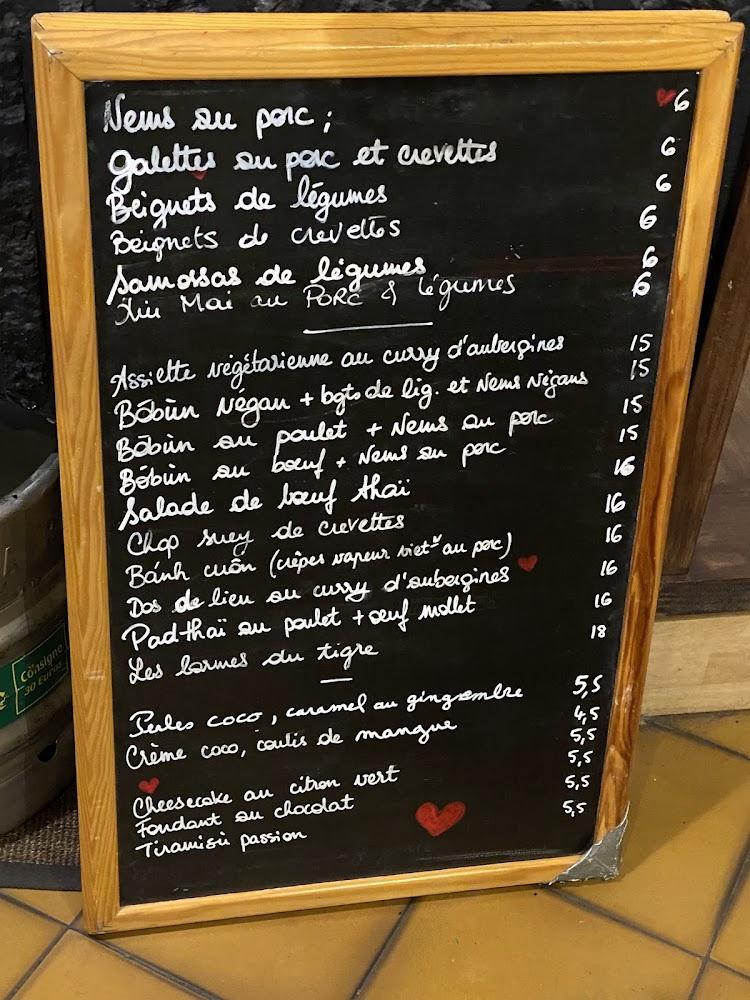 Nems au porc ; 6
Galettes au porc et crevettes 6
Beignets de légumes 6
Beignets de crevettes 6
Samossas de légumes 6
Xíu Mai au PORC & légumes 6
Assiette végétarienne au curry d'aubergines 15
Bôbùn végan + bgts de lég. et Nems végans 15
Bôbùn au poulet + Nems au porc 15
Bôbùn au bœuf + Nems au porc 15
Salade de bœuf thaï 16
Chop suey de crevettes 16
Bánh cuôn (crêpes vapeur viet. au porc) 16
Dos de lieu au curry d'aubergines 16
Pad-thaï au poulet + œuf mollet 16
Les larmes du tigre 18
Perles coco, caramel au gingembre 5,5
Crème coco, coulis de mangue 4,5
5,5
Cheesecake au citron vert 5,5
Fondant au chocolat 5,5
Tiramisù passion 5,5
Consigne
30 Euros